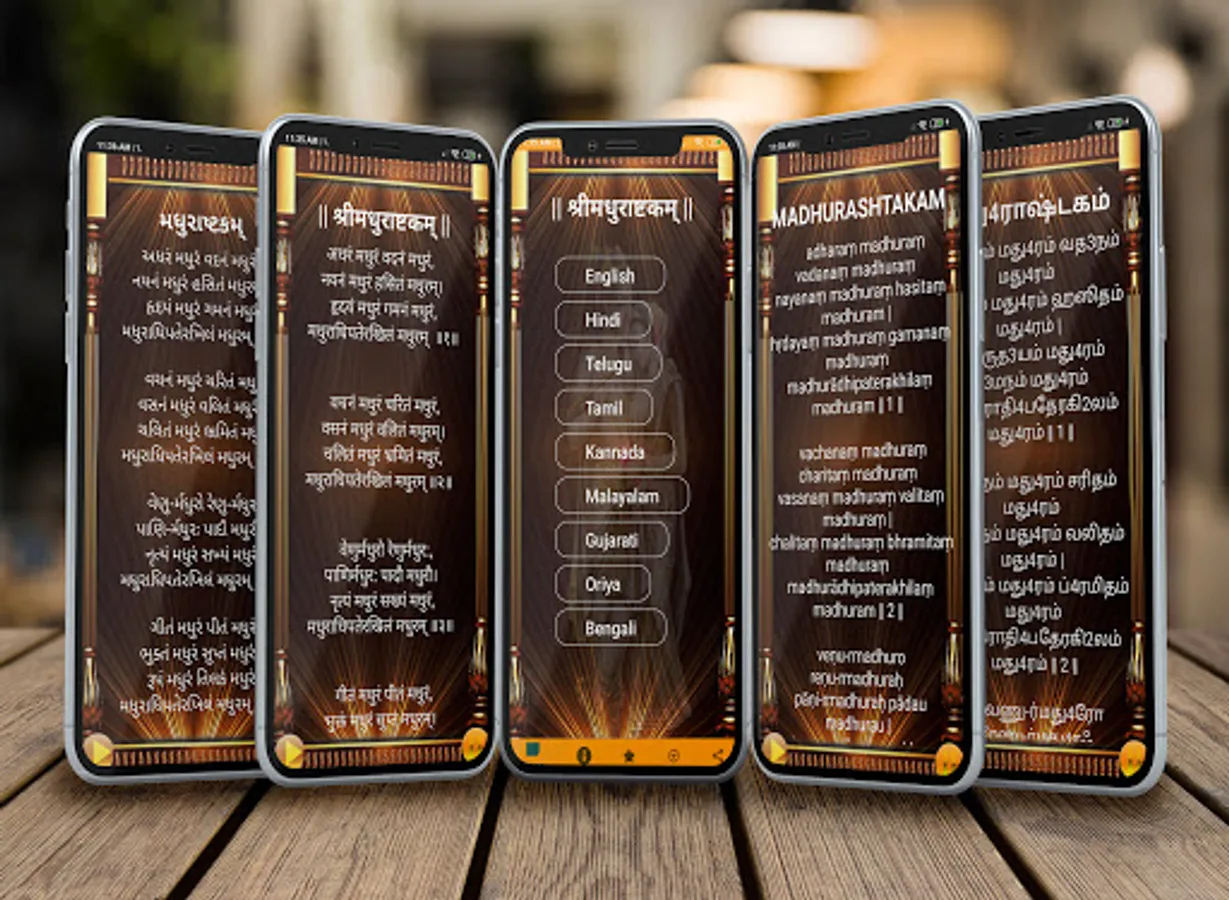 11:35 AM
મધુરાષ્ટકમ્
અધરં મધુરં વદનં મધુરં
નયનં મધુરં હસિતં મધુરં
હૃદયં મધુરં ગમનં મધુરં
મધુરાધિપતેરખિલં મધુરમ્
વચનં મધુરં ચરિતં મધુરં
વસનં મધુરં વલિતં મધુરં
ચલિતં મધુરં ભ્રમિતં મધુરં
મધુરાધિપતેરખિલં મધુરમ્
વેણુ-ર્મધુરો રેણુ-ર્મધુરઃ
પાણિ-ર્મધુરઃ પાદૌ મધુરૌ
નૃત્યં મધુરં સખ્યં મધુરં
મધુરાધિપતેરખિલં મધુરમ્
ગીતં મધુરં પીતં મધુરં
ભુક્તં મધુરં સુપ્તં મધુરં
રૂપં મધુરં તિલકં મધુરં
મધુરાધિપતેરખિલં મધુરમ્
11:35 AM
|| श्रीमधुराष्टकम् ||
अधरं मधुरं वदनं मधुरं,
नयनं मधुरं हसितं मधुरम्।
हृदयं मधुरं गमनं मधुरं,
मधुराधिपतेरखिलं मधुरम् ॥१॥
वचनं मधुरं चरितं मधुरं,
वसनं मधुरं वलितं मधुरम्।
चलितं मधुरं भ्रमितं मधुरं,
मधुराधिपतेरखिलं मधुरम् ॥२॥
वेणुर्मधुरो रेणुर्मधुरः,
पाणिर्मधुरः पादौ मधुरौ।
नृत्यं मधुरं सख्यं मधुरं,
मधुराधिपतेरखिलं मधुरम् ॥३॥
गीतं मधुरं पीतं मधुरं,
भुक्तं मधुरं सुप्तं मधुरम्।
|| श्रीमधुराष्टकम् ||
English
Hindi
Telugu
Tamil
Kannada
Malayalam
Gujarati
Oriya
Bengali
MADHURASHTAKAM
adharaṃ madhuraṃ
vadanaṃ madhuraṃ
nayanaṃ madhuraṃ hasitaṃ
madhuram |
hṛdayaṃ madhuraṃ gamanaṃ
madhuraṃ
madhurādhipaterakhilaṃ
madhuram || 1 ||
vachanaṃ madhuraṃ
charitaṃ madhuraṃ
vasanaṃ madhuraṃ valitaṃ
madhuraṃ |
chalitaṃ madhuraṃ bhramitaṃ
madhuraṃ
madhurādhipaterakhilaṃ
madhuram || 2 ||
veṇu-rmadhuro
reṇu-rmadhuraḥ
pāṇi-rmadhuraḥ pādau
madhurau |
4ராஷ்டகம்
மது4ரம் வத3நம்
மது4ரம்
மது4ரம் ஹஸிதம்
மது4ரம் |
ருத3யம் மது4ரம்
3மநம் மது4ரம்
ராதி4பதேரகி2லம்
மது4ரம் || 1 ||
மது4ரம் சரிதம்
மது4ரம்
மது4ரம் வலிதம்
மது4ரம் |
மது4ரம் ப்4ரமிதம்
மது4ரம்
ராதி4பதேரகி2லம்
மது4ரம் || 2 ||
வேணு-ர்மது4ரோ